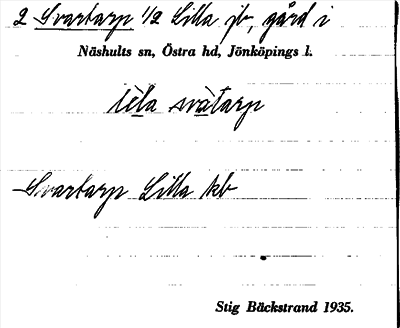 2 Svartarp 1/2 Lilla jb, gård i
Näshults sn, Östra hd, Jönköpings l.
lèla svàtarp
Svartarp Lilla kb
Stig Bäckstrand 1935.